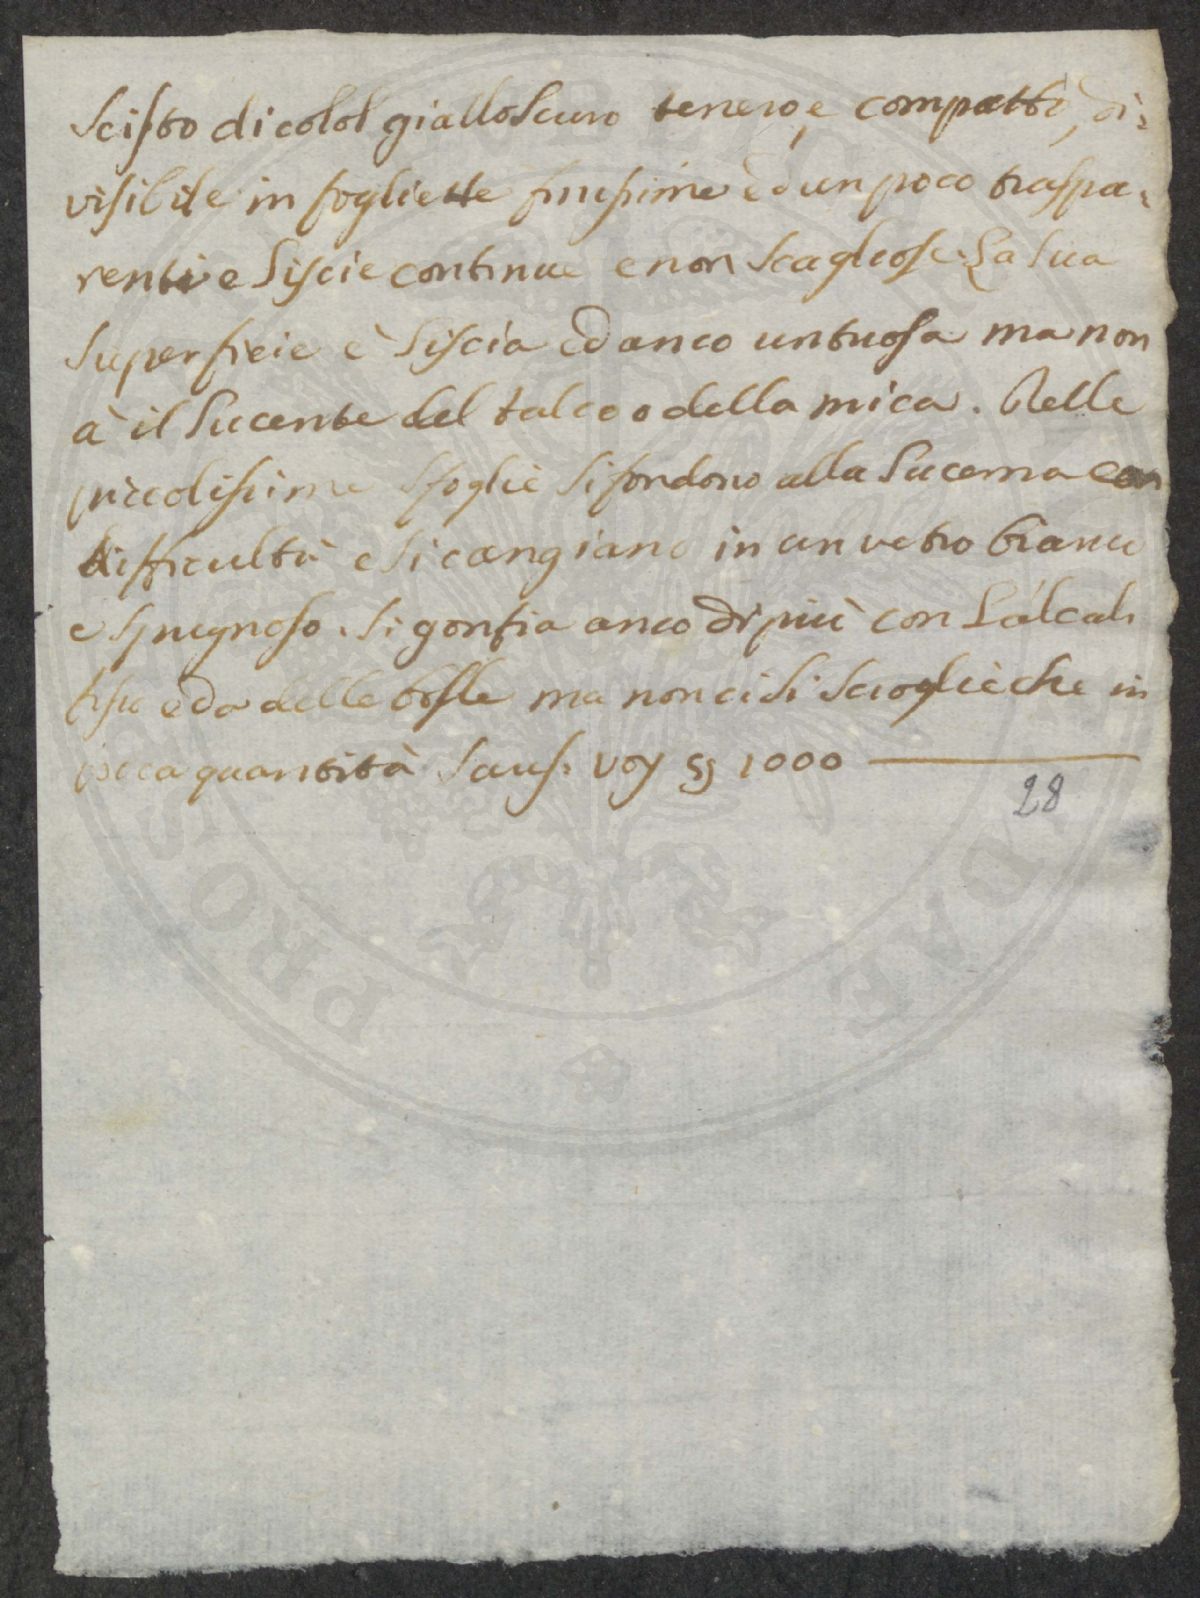 Scisto di color gialloscuro tenero, e compatto, di=
visibile in fogliette finissime ed un poco traspa=
renti e liscie continue e non scagliose. La sua
superficie è liscia ed anco untuosa ma non
à il lucente del talco o della mica. Nelle
piccolissime sfoglie si fondono alla lucerna con
difficultà e si cangiano in un vetro bianco
e spugnoso. Si gonfia anco di più con l'alcali
fisso e da delle bolle ma non ci si scioglie che in
poca quantità Saus. Voy §§ 1000
28
PROS
DAE